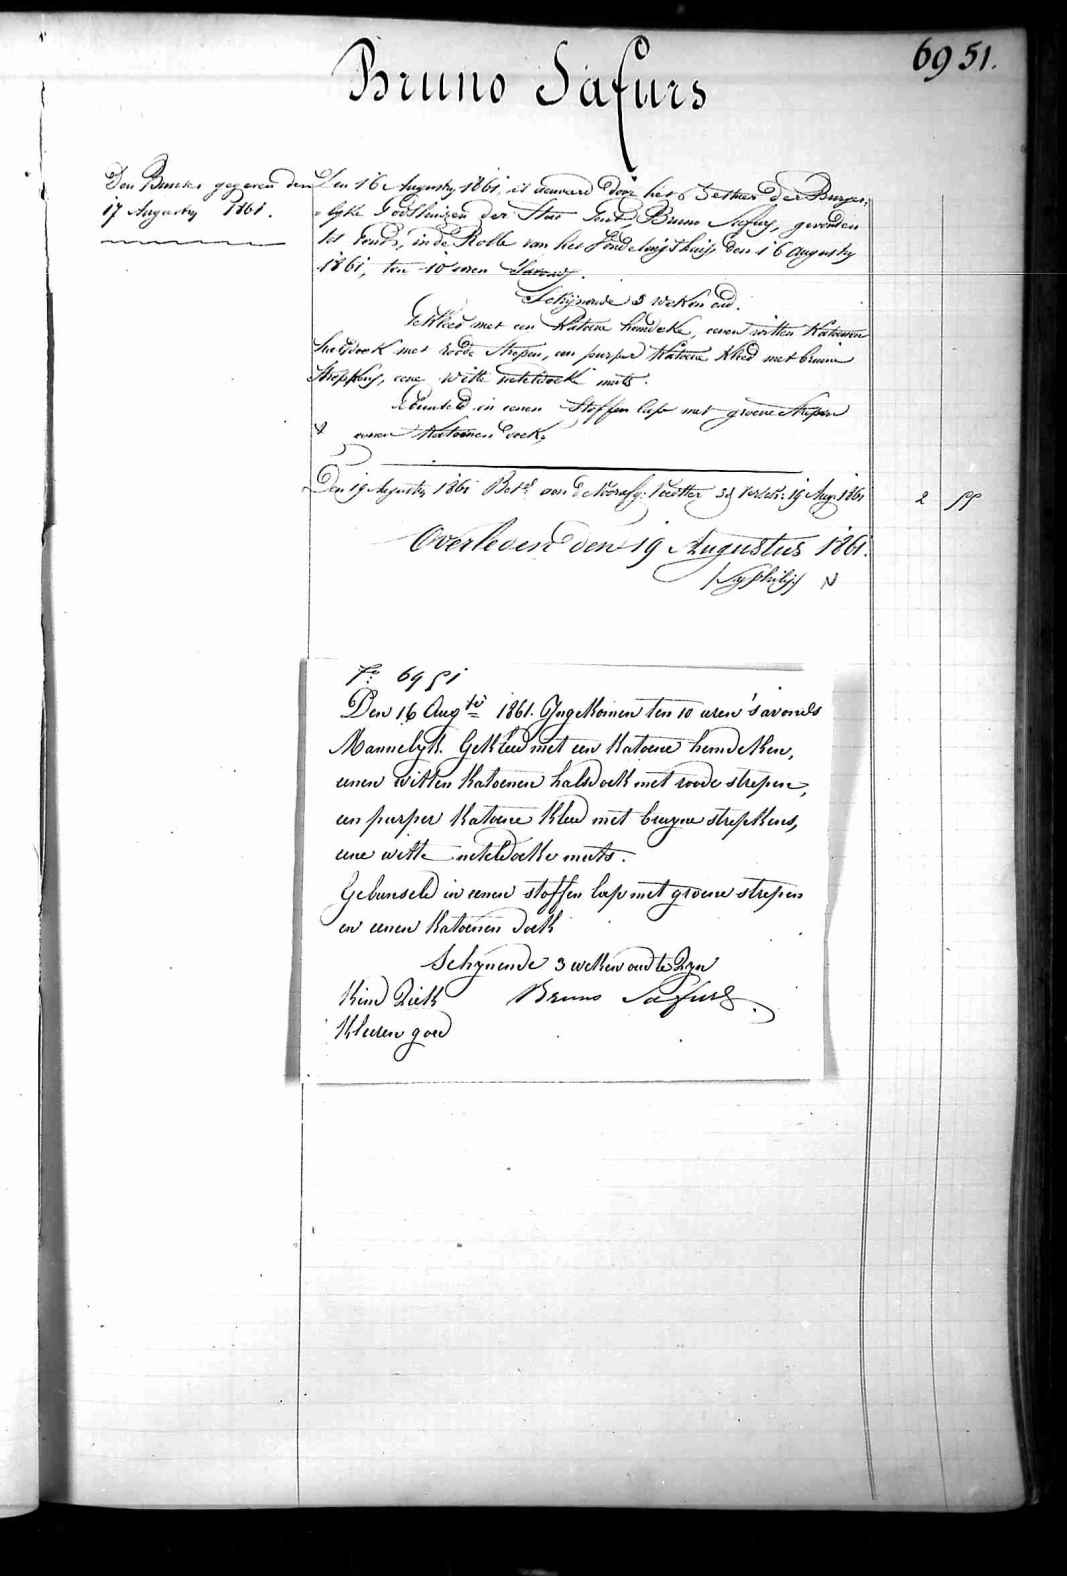 6951.
Bruno Safurs
Den Buries gegeven den
17 Augusty 1861.
Den 16 Augusty 1861, is door het Bestier der Burger,
lyke Godshuizen der Stad Gent, Bruno Safurs, gevonden
tot Gend, in de Rolle van het Vondelingshuis, den 16 Augusty
1861, ten 10 uren 'Savonds.
Schijnende 3 weken oud.
Gekleed met een Katoene hemdeke, eenen witten Katoenen
halsdoek met roode strepen, een purper Katoene kleed met bruine
Streepkens, eene witte neteldoeke muts.
Gebunseld in eenen Stoffen lap met groene strepen
& eenen Katoenen doek,
Den 19 Augusty 1861 19 Aug. 1861
2 55
Overleden den 19 Augustus 1861.
/Syphilis/
N° 6951
Den 16 Aug.ti 1861. Ingekomen ten 10 uren 's avonds
Mannelyk. Gekleed met een Katoene hemdeken,
eenen witten Katoenen halsdoek met roode strepen,
een purper Katoene kleed met bruyne strepkens,
eene witte neteldoeke muts.
Gebunseld in eenen stoffen lap met groene strepen
en eenen Katoenen doek
Schynende 3 weken oud te Zyn
Kind Ziek Bruno Safurs.
Kleeren goed